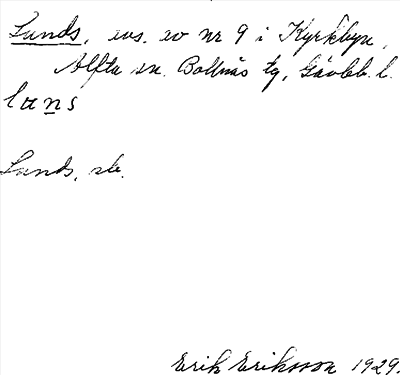 Lunds, evs. ev nr 9 i Kyrkbyn,
Alfta sn. Bollnäs tg, Gävleb. l.
luns
Lunds, sb.
Erik Eriksson 1929.